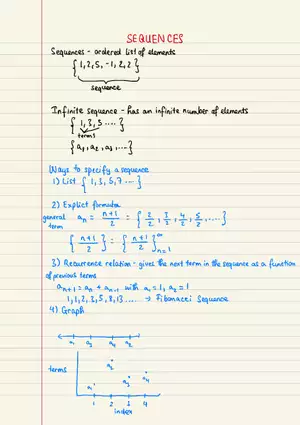 SEQUENCES
Sequences - ordered list of elements
{1, 2, 5, -1, 2, 2}
sequence
Infinite sequence - has an infinite number of elements
{1, 3, 5 ....}
terms
{a₁, a₂, a₃ ,....}
Ways to specify a sequence
1) List {1, 3, 5, 7 ....}
2) Explicit formula
general term aₙ = n+1/2 = {2/2, 3/2, 4/2, 5/2, ....}
{n+1/2} = {n+1/2}∞ n=1
3) Recurrence relation - gives the next term in the sequence as a function
of previous terms
aₙ₊₁ = aₙ + aₙ₋₁ with a₁ = 1, a₂ = 1
1, 1, 2, 3, 5, 8, 13..... → Fibonacci Sequence
4) Graph
a₁ a₃ a₄ a₂
terms
a₁ a₂ a₃ a₄
1 2 3 4
index